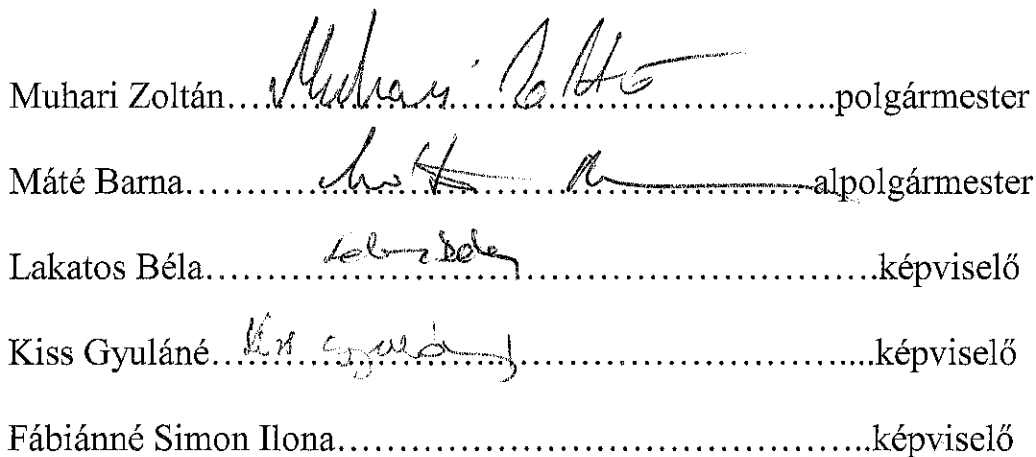 Muhari Zoltán.....Muhari Zoltán.....polgármester
Máté Barna..........alpolgármester
Lakatos Béla..........képviselő
Kiss Gyuláné...Kiss Gyuláné..........képviselő
Fábiánné Simon Ilona..........képviselő